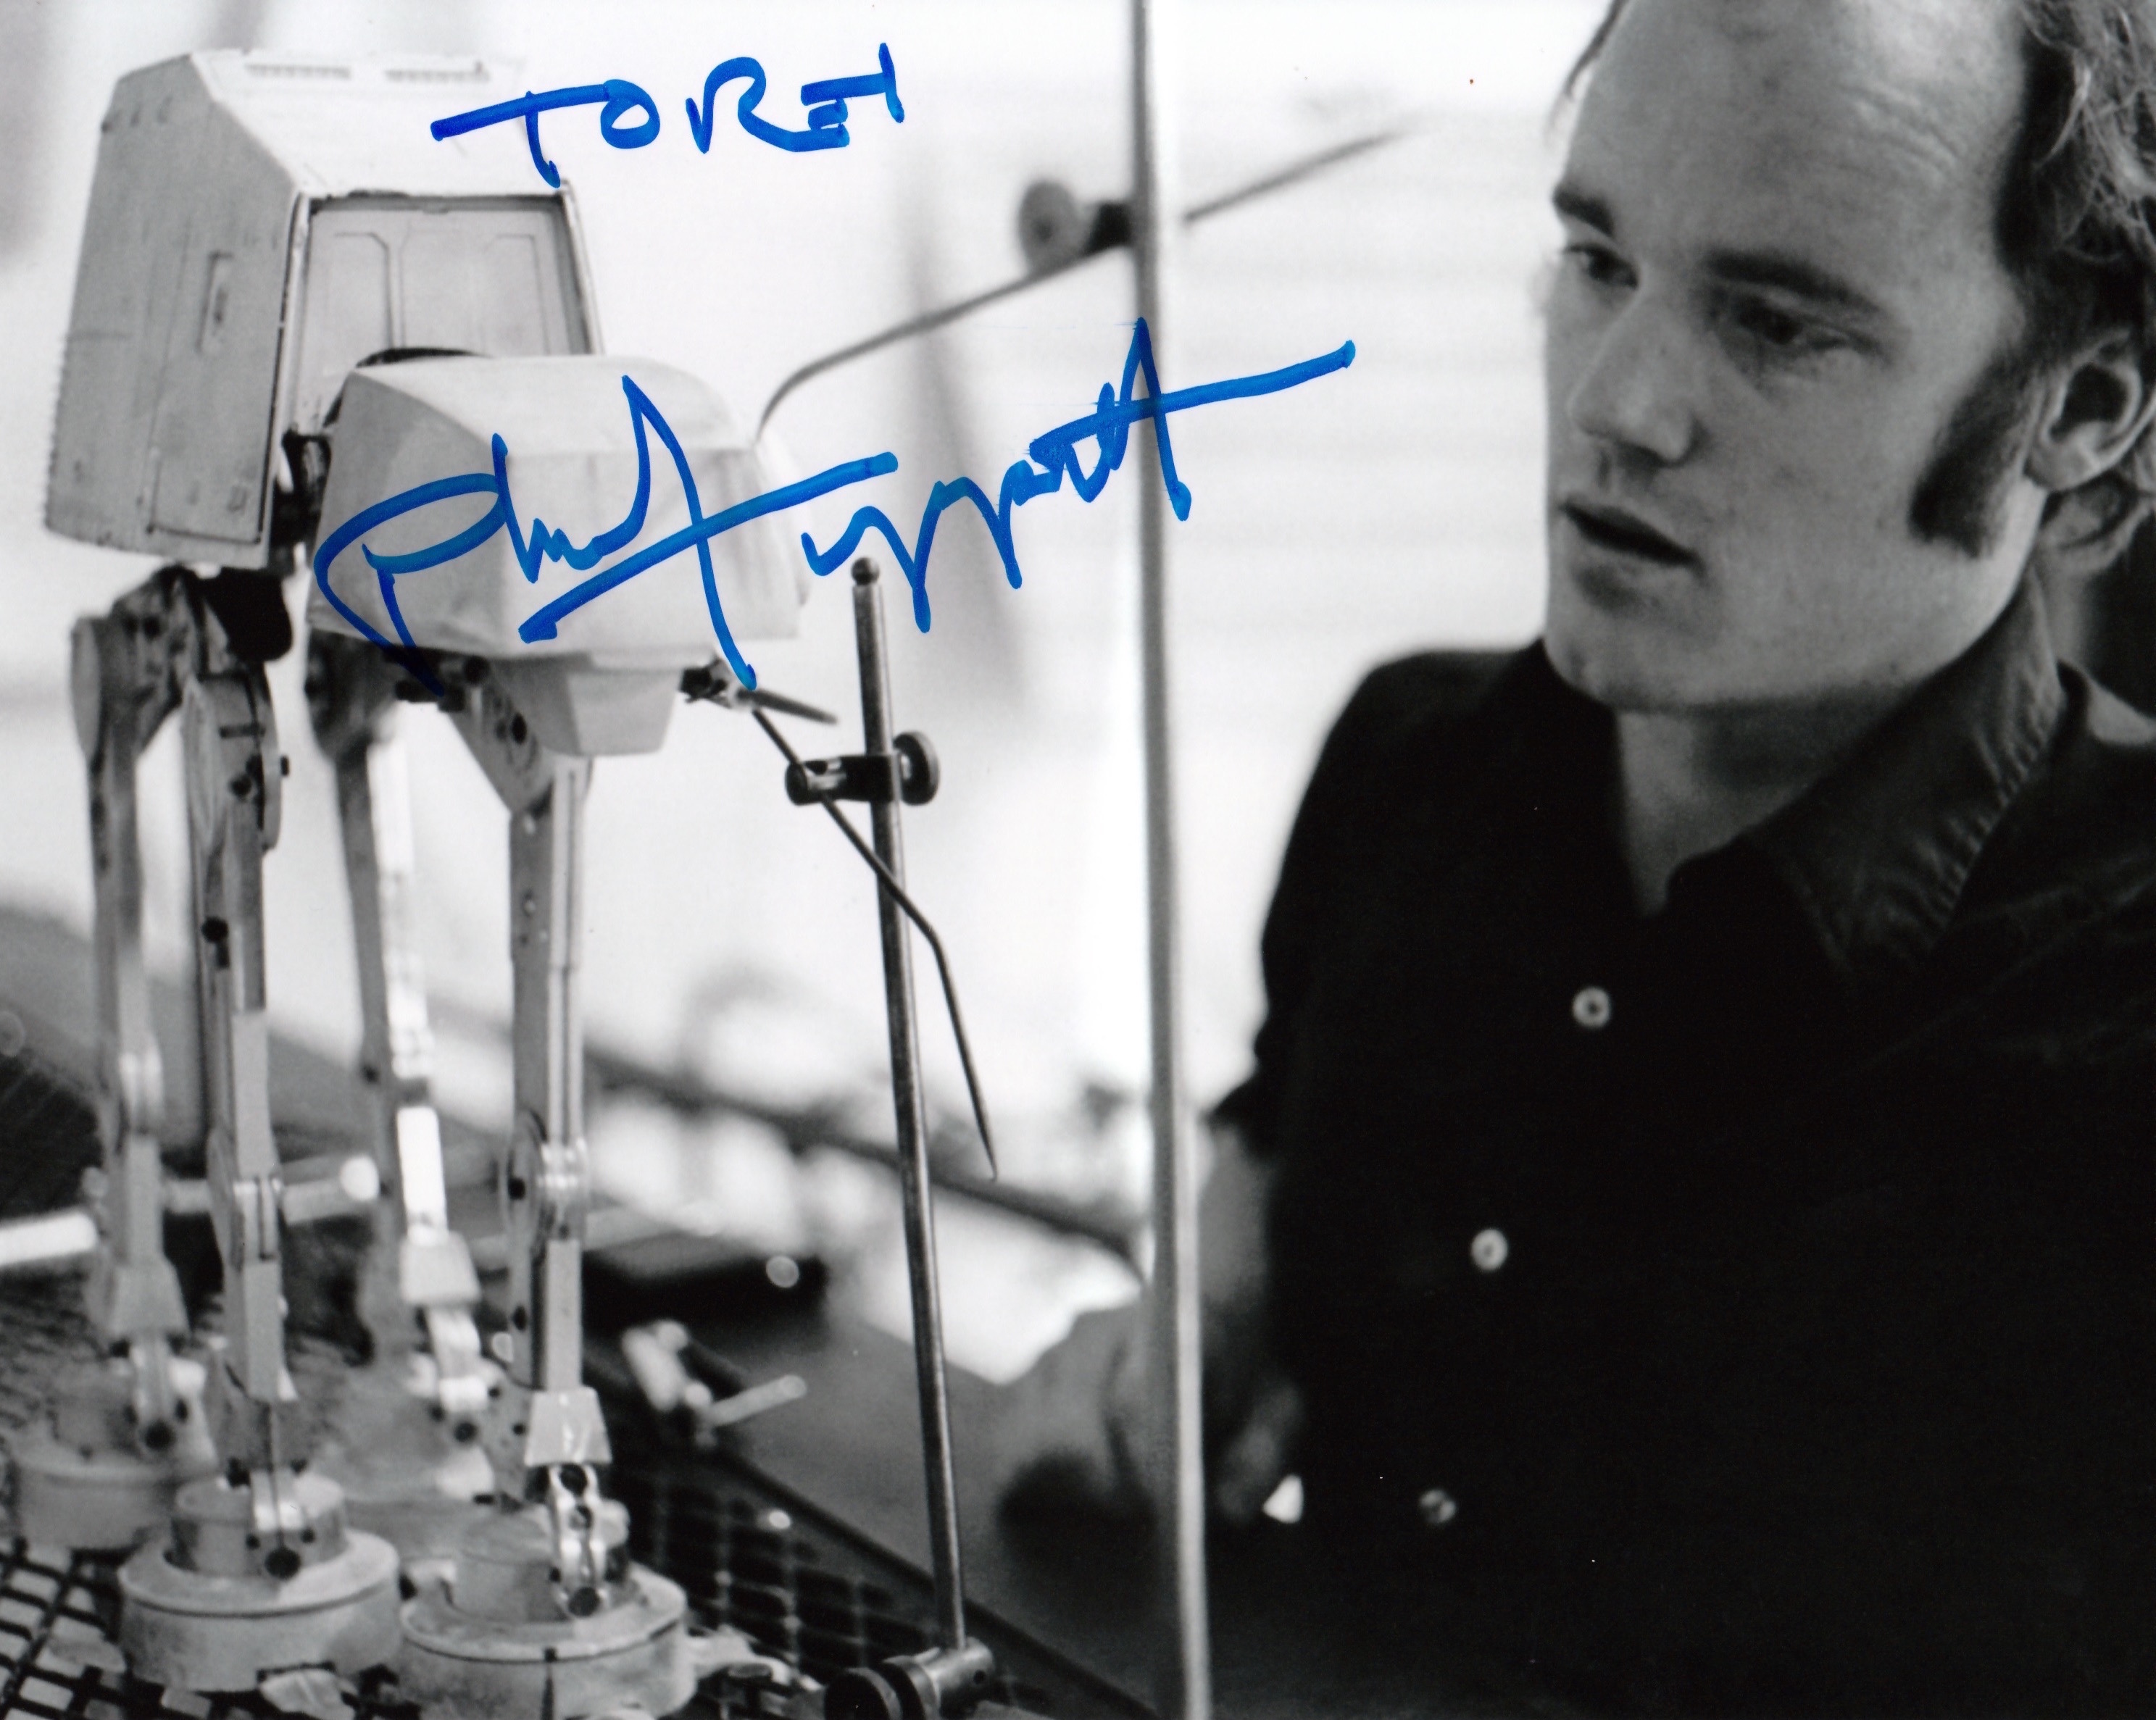 TORET
Phil Tippett